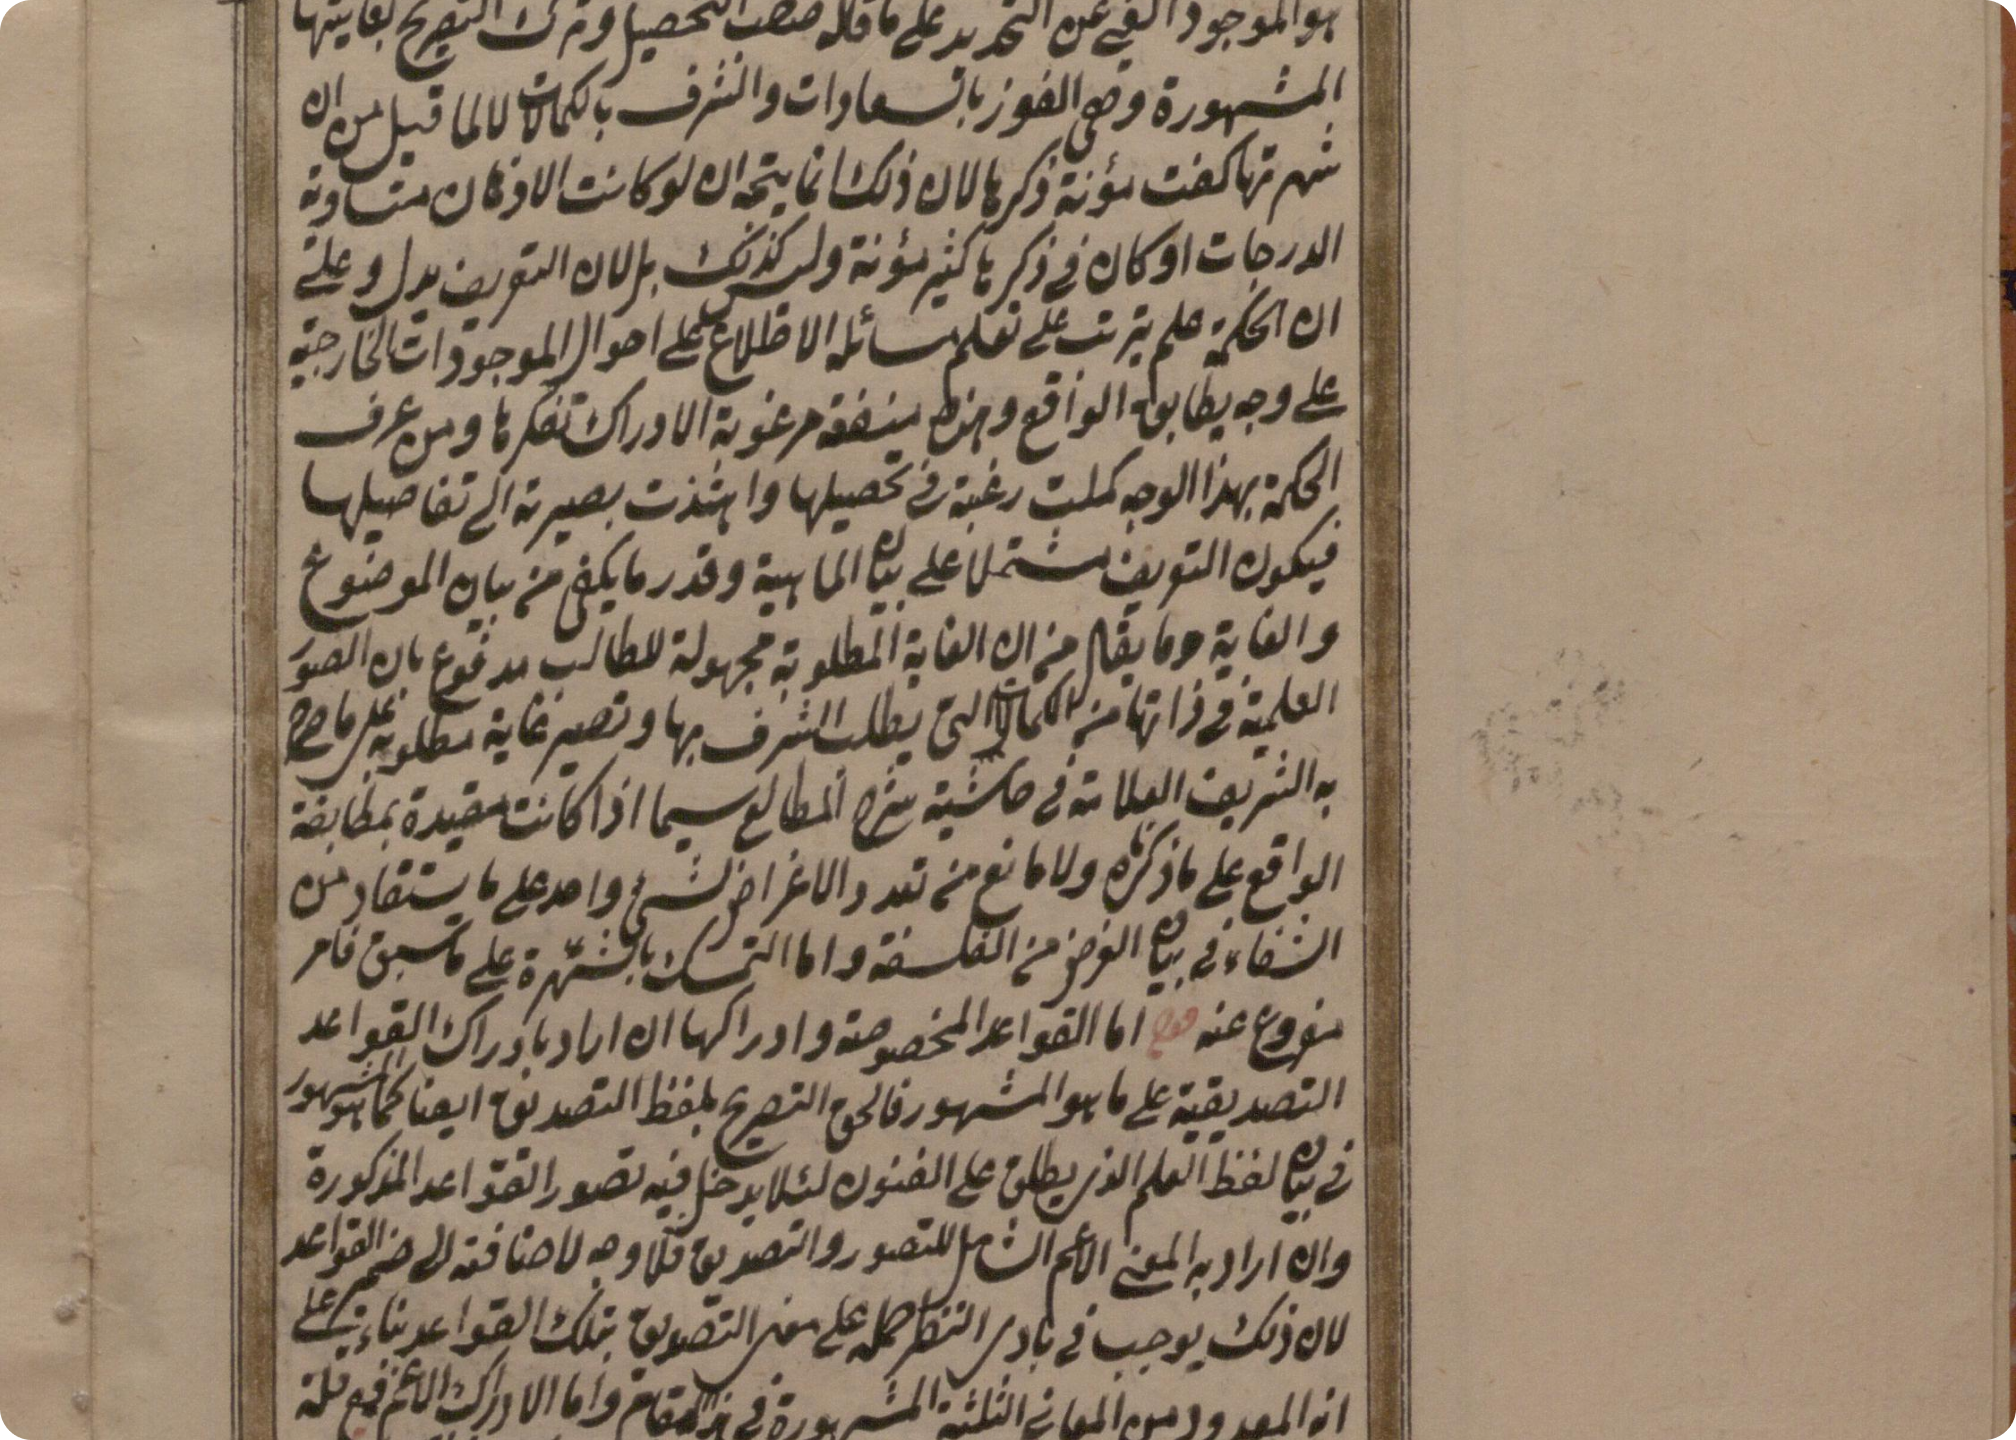 هو الموجود الغنى عن التحديد على ما قاله صاحب التحصيل وترك التصريح بغايتها
المشهورة وهى الفوز بالسعادات والشرف بالكمالات لا لما قيل من ان
شهرتها كفت مؤنة ذكرها لان ذلك انما يتجه ان لو كانت الاذهان متساوية
الدرجات او كان فى ذكرها كثير مؤنة وليس كذلك بل لان التعريف يدل على
ان الحكمة علم يترتب على تعلم مسائله الاطلاع على احوال الموجودات الخارجية
على وجه يطابق الواقع وهذه منفعة مرغوبة الادراك تفكرها ومن عرف
الحكمة بهذا الوجه كملت رغبته فى تحصيلها واهتدت بصيرته الى تفاصيلها
فيكون التعريف مشتملا على بيان الماهية وقدر ما يكفى من بيان الموضوع
والغاية وما يقال من ان الغاية المطلوبة مجهولة للطالب مدفوع بان الصور
العلمية فى ذاتها من الكمالات التى يطلب الشرف بها وتصير غاية مطلوبة على ما صرح
به الشريف العلامة فى حاشية شرح المطالع سيما اذا كانت مقيدة بمطابقة
الواقع على ما ذكرناه ولا مانع من تعدد الاغراض لشئ واحد على ما يستفاد من
الشفاء فى بيان الغرض من الفلسفة واما التمسك بالشهرة على ما سبق فامر
مفروغ عنه قوله اما القواعد المخصوصة وادراكها ان اراد بادراك القواعد
التصديقية على ما هو المشهور فالحق التصريح بلفظ التصديق ايضا كما هو المشهور
فى بيان لفظ العلم الذى يطلق على الفنون لئلا يدخل فيه تصور القواعد المذكورة
وان اراد به المعنى الاعم الشامل للتصور والتصديق فلا وجه لاضافته الى ضمير القواعد
لان ذلك يوجب فى بادى النظر حمله على معنى التصديق بتلك القواعد بناء على
انه المعدود من المعانى الثلثة المشهورة فى هذا المقام واما الادراك الاعم فمع قلة